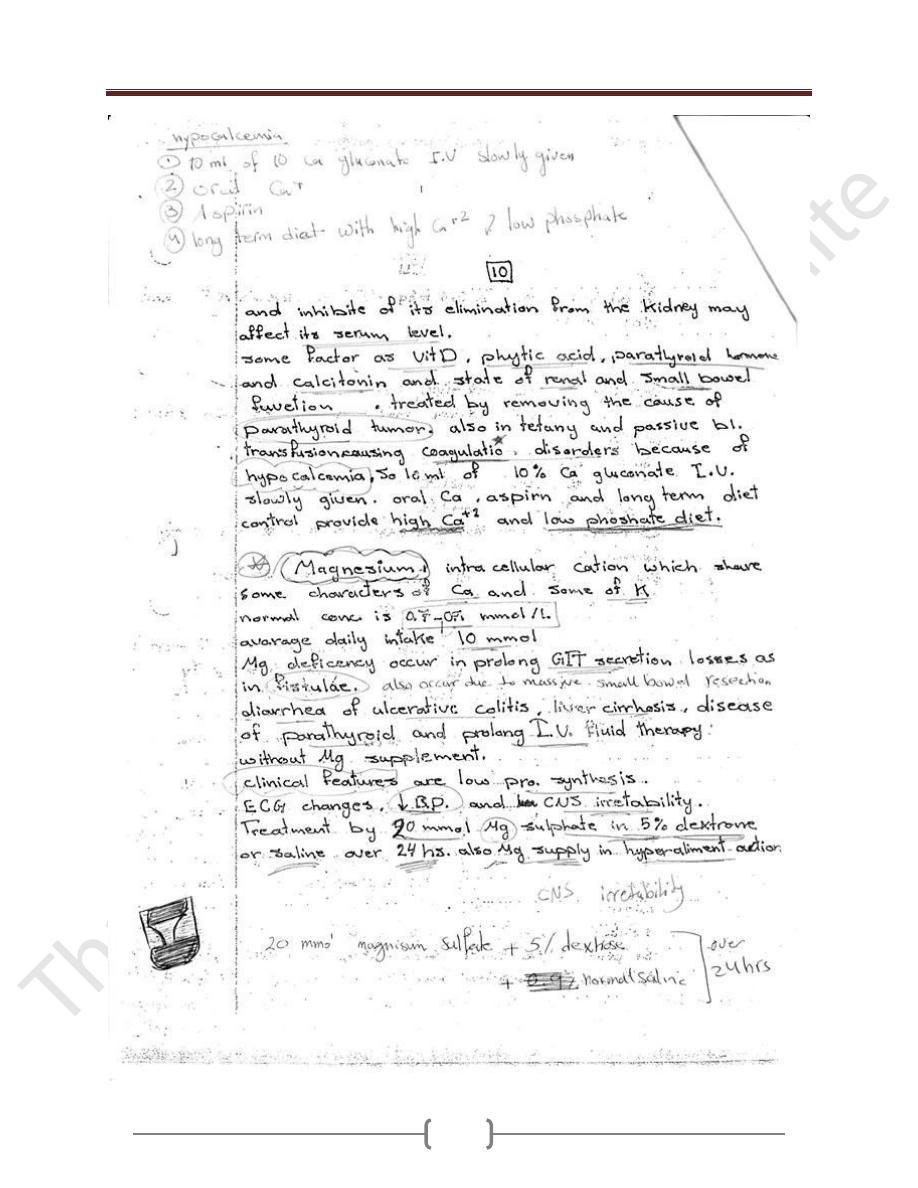 hypocalcemia
① 10 ml of 10 Ca gluconate I.V slowly given
② oral Ca+
③ Aspirin
④ long term diat with high Ca+2 low phosphate
10
and inhibite of its elimination from the kidney may
affect its serum level.
some factor as Vit D, phytic acid, parathyroid hormone
and calcitonin and state of renal and small bowel
fuvetion . treated by removing the cause of
parathyroid tumor. also in tetany and passive bl.
transfusion causing coagulatio. disorders because of
hypocalcemia, So 10 ml of 10% Ca gluconate I.V.
slowly given. oral Ca, aspirn and long term diet
control provide high Ca+2 and low phoshate diet.
Magnesium, intracellular cation which share
some characters of Ca and some of K
normal conc is mmol/L
avarage daily intake 10 mmol
Mg deficency occur in prolong GIT secretion losses as
in fistulae. also occur due to massive small bowel resection
diarrhea of ulcerative colitis, liver cirrhosis, disease
of parathyroid and prolong I.V. fluid therapy.
without Mg supplement.
clinical features are low pro. synthesis.
ECG changes, ↓ B.P. and CNS irretability.
Treatment by 20 mmol Mg sulphate in 5% dextrone
or saline over 24 hs. also Mg supply in hyperaliment-action
CNS irretability
20 mmol magnisum Sulfate + 5% dextrose
+ normal Saline
over
24 hrs
Th
ite